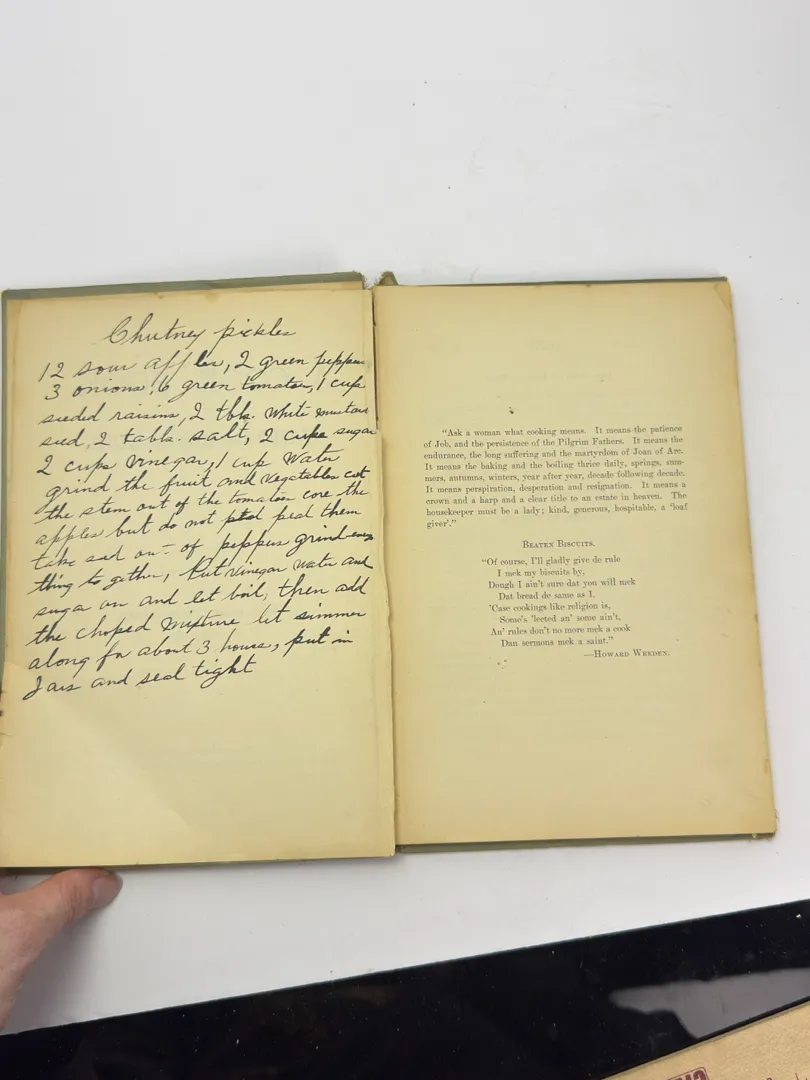 Chutney pickles
12 sour apples, 2 green peppers
3 onions, 6 green tomatoes, 1 cup
seeded raisins, 2 tbls. White mustard
seed, 2 tabls. salt, 2 cups sugar
2 cups Vinegar, 1 cup Water
grind the fruit and Vegetables cut
the stem out of the tomatoes core the
apples but do not peal them
take sed out of peppers grind every
thing to gether, Put vinegar water and
sugar on and let boil, then add
the choped Mixture let simmer
along for about 3 hours, put in
Jars and seal tight
"Ask a woman what cooking means. It means the patience
of Job, and the persistence of the Pilgrim Fathers. It means the
endurance, the long suffering and the martyrdom of Joan of Arc.
It means the baking and the boiling thrice daily, springs, sum-
mers, autumns, winters, year after year, decade following decade.
It means perspiration, desperation and resignation. It means a
crown and a harp and a clear title to an estate in heaven. The
housekeeper must be a lady; kind, generous, hospitable, a 'loaf
giver'."
Beaten Biscuits.
"Of course, I'll gladly give de rule
I mek my biscuits by,
Dough I ain't sure dat you will mek
Dat bread de same as I.
'Case cookings like religion is,
Some's 'lected an' some ain't,
An' rules don't no more mek a cook
Dan sermons mek a saint."
—Howard Weeden.